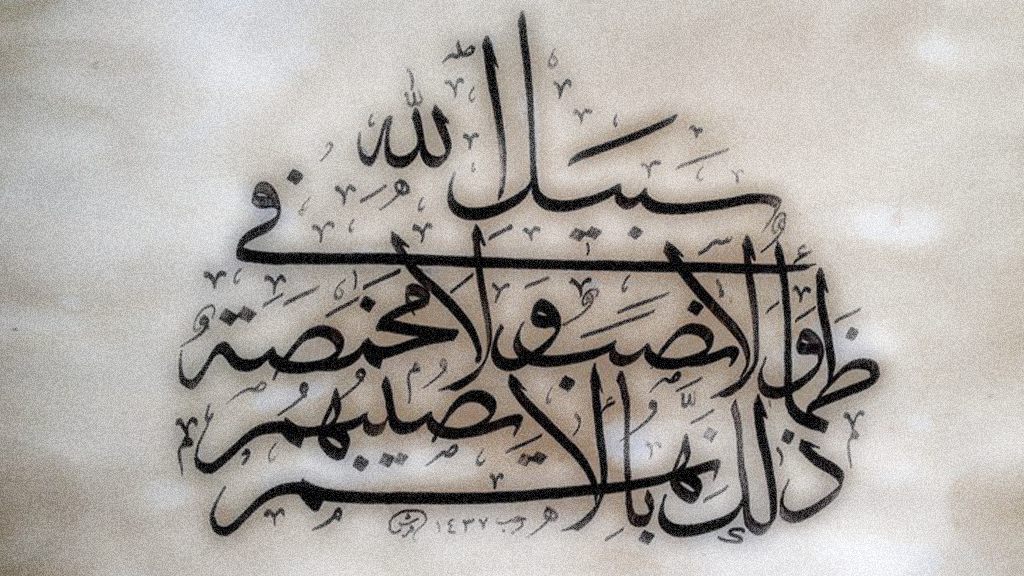 ذَٰلِكَ بِأَنَّهُمْ لَا يُصِيبُهُمْ
ظَمَأٌ وَلَا نَصَبٌ وَلَا مَخْمَصَةٌ فِي
سَبِيلِ اللَّهِ
رجب ١٤٣٧ هـ